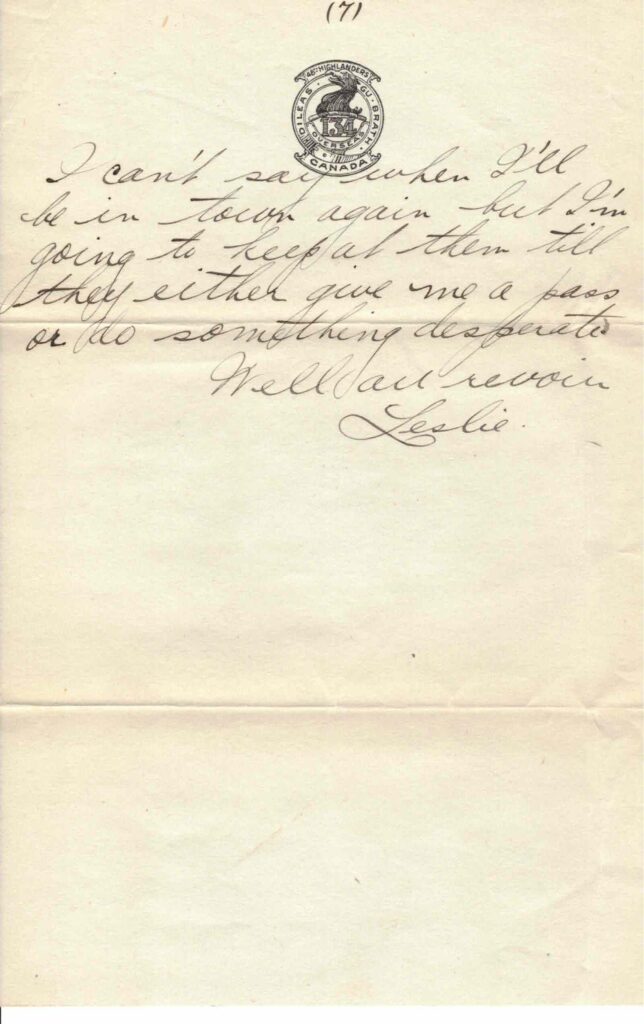 (7)
48TH HIGHLANDERS
DILEAS GU BRATH
134
OVERSEAS
CANADA
I can't say when I'll
be in town again but I'm
going to keep at them till
they either give me a pass
or do something desperate
Well au revoir
Leslie.